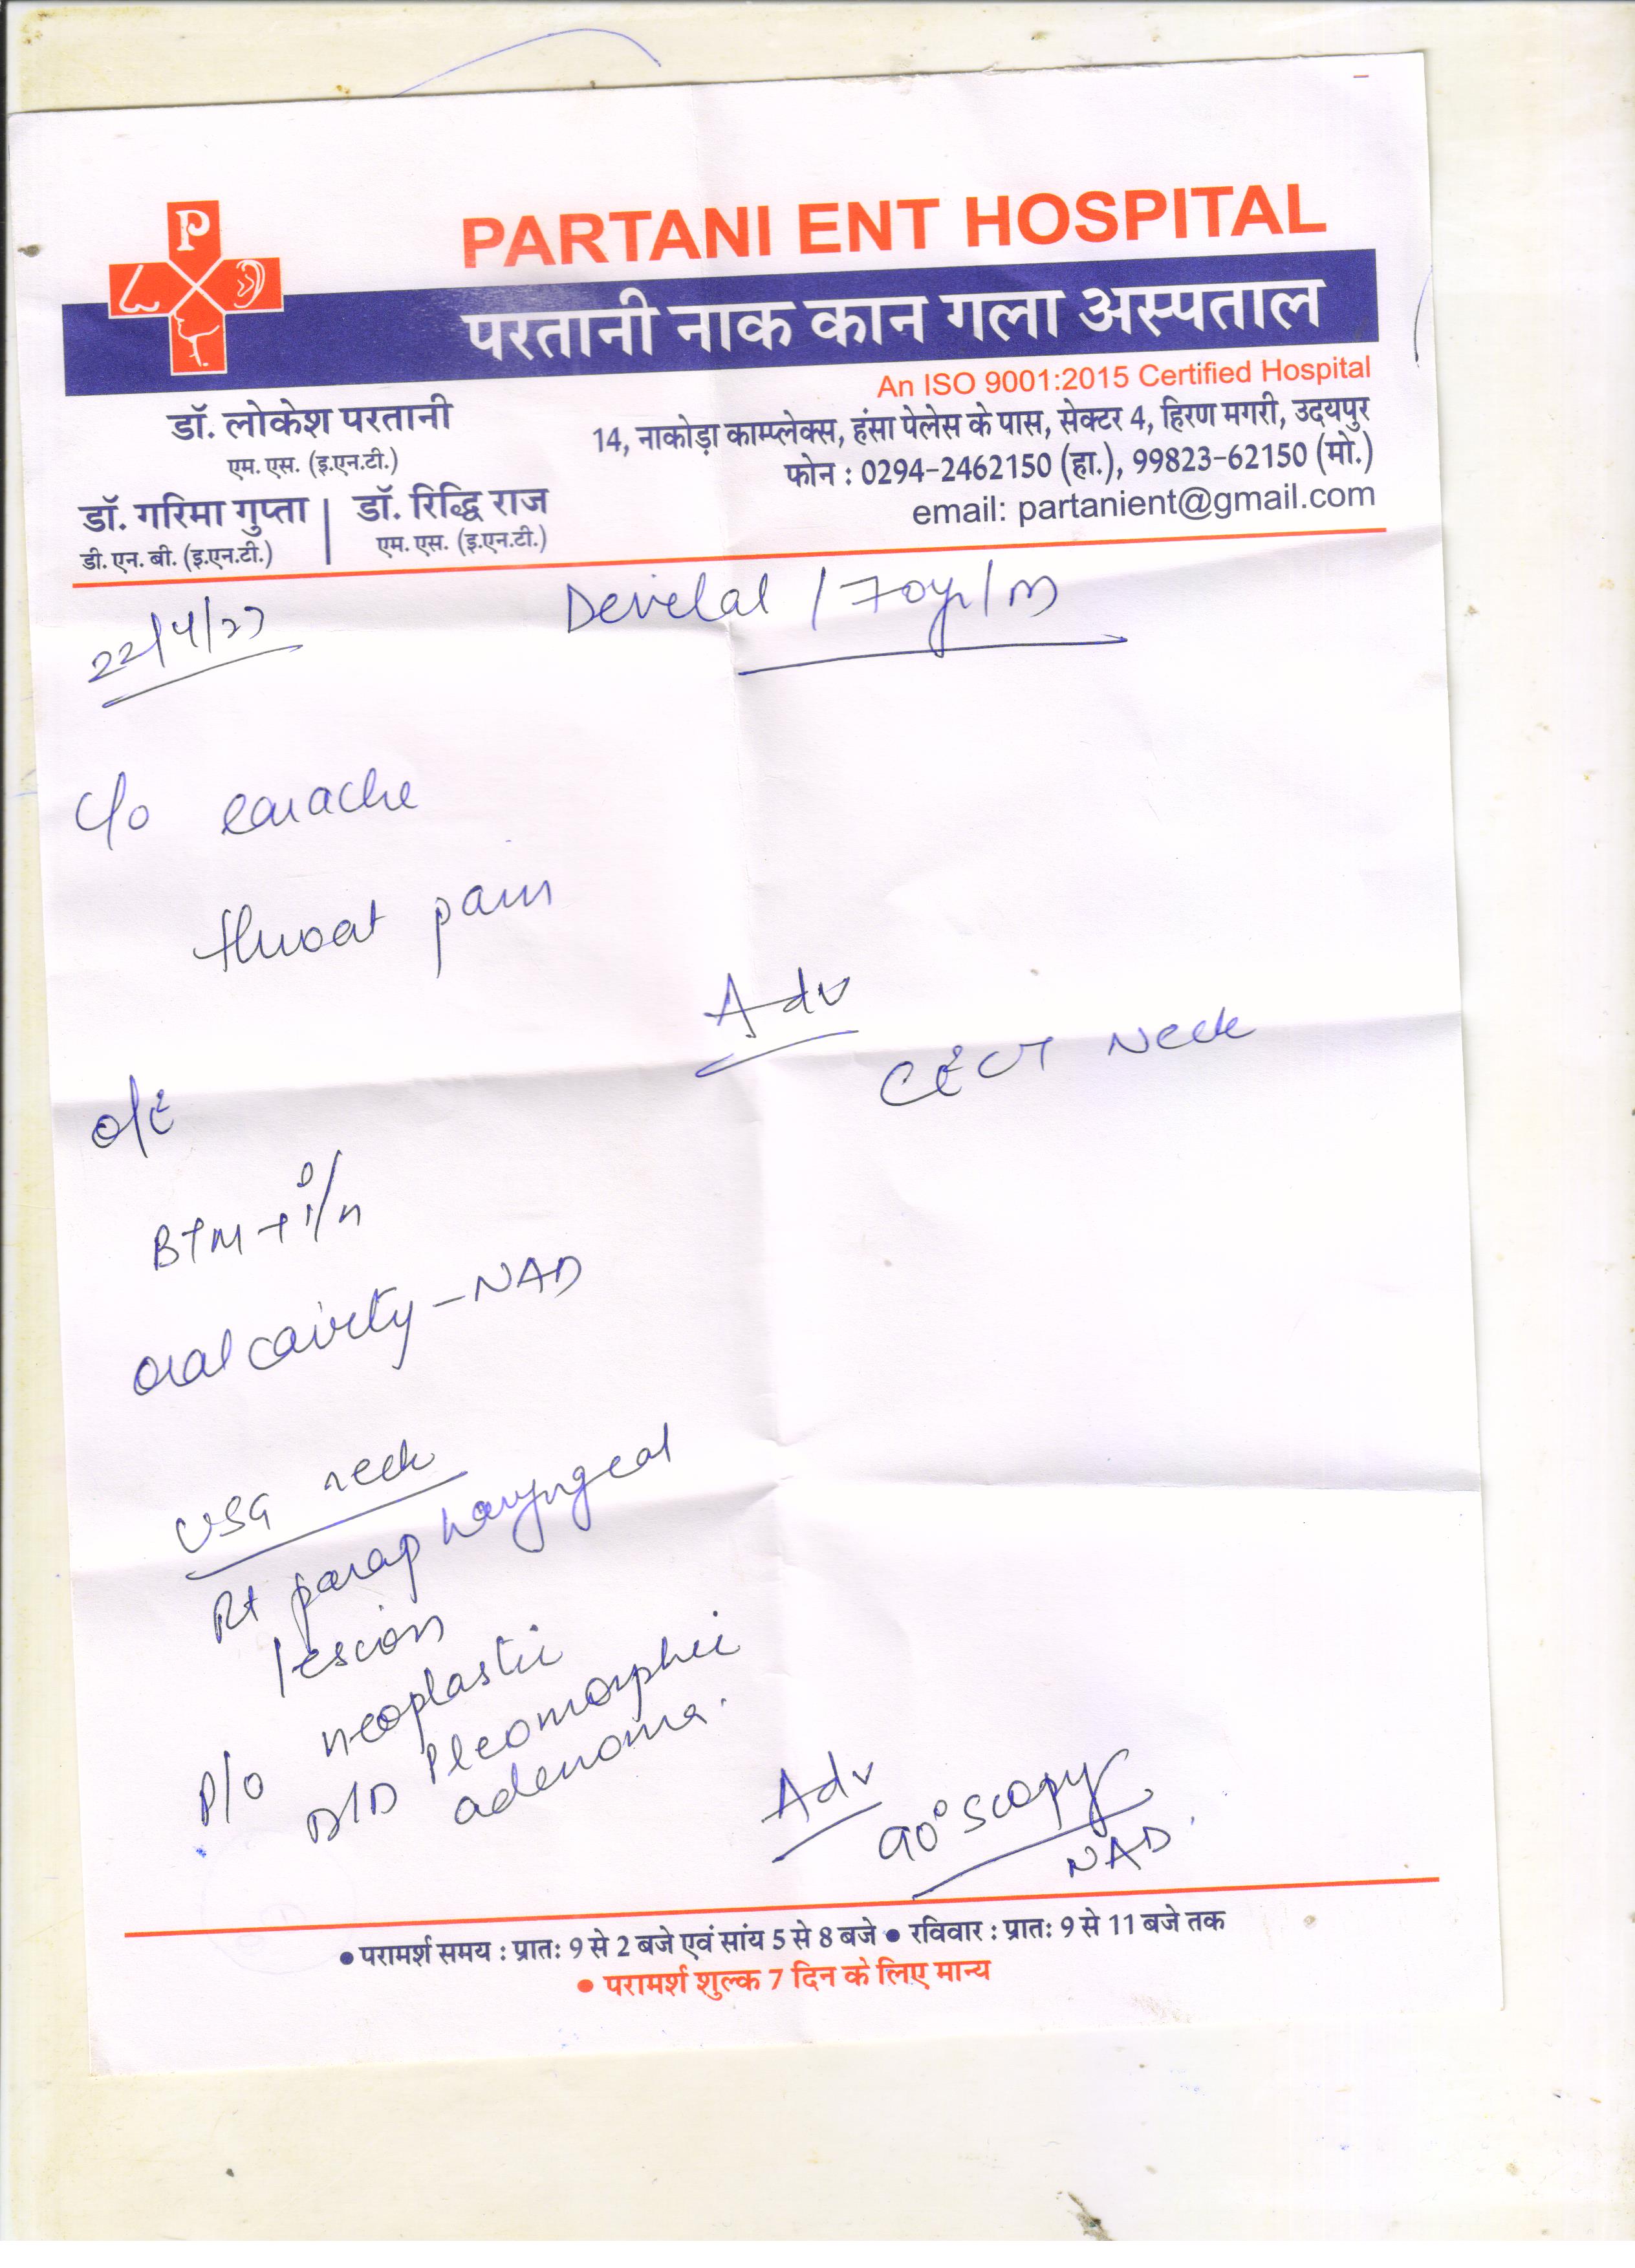 P
PARTANI ENT HOSPITAL
परतानी नाक कान गला अस्पताल
An ISO 9001:2015 Certified Hospital
डॉ. लोकेश परतानी
एम. एस. (इ.एन.टी.)
डॉ. गरिमा गुप्ता | डॉ. रिद्धि राज
डी. एन. बी. (इ.एन.टी.) एम. एस. (इ.एन.टी.)
14, नाकोड़ा काम्प्लेक्स, हंसा पेलेस के पास, सेक्टर 4, हिरण मगरी, उदयपुर
फोन : 0294-2462150 (हा.), 99823-62150 (मो.)
email: partanient@gmail.com
22/4/23
Devilal / 70yr/m
C/o earache
throat pain
Adv
CECT Neck
O/E
BTM
oral cavity - NAD
USG neck
Rt parapharyngeal
lescion
P/o neoplastic
D/D Pleomorphic
adenoma.
Adv
90° scopy
NAD.
• परामर्श समय : प्रातः 9 से 2 बजे एवं सांय 5 से 8 बजे • रविवार : प्रातः 9 से 11 बजे तक
• परामर्श शुल्क 7 दिन के लिए मान्य